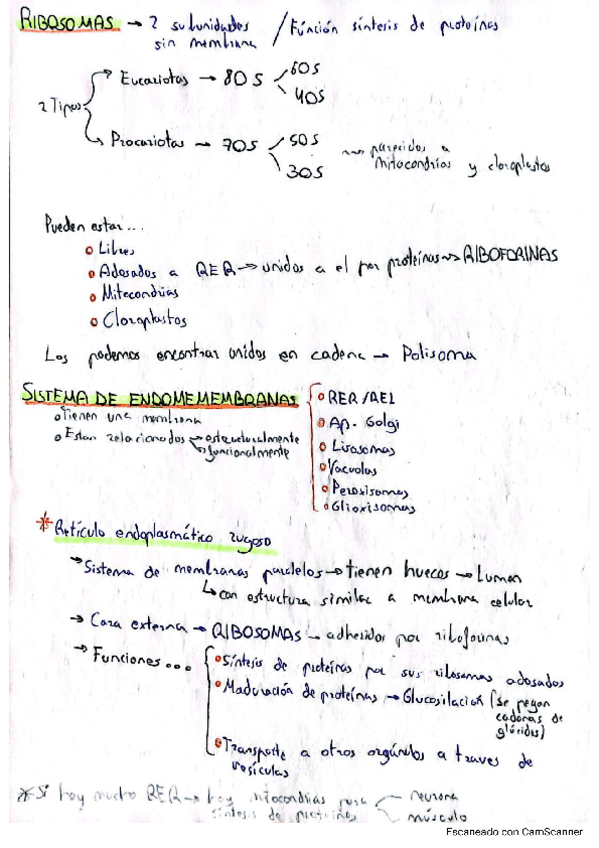 RIBOSOMAS → 2 subunidades / Función síntesis de proteínas
sin membrana
2 Tipos
Eucariotas → 80S
60S
40S
Procariotas → 70S
50S
30S
parecidos a
mitocondrias y cloroplastos
Pueden estar...
Libres
Adosados a RER → unidos a el por proteínas → RIBOFORINAS
Mitocondrias
Cloroplastos
Los podemos encontrar unidos en cadena → Polisoma
SISTEMA DE ENDOMEMEMBRANAS
Tienen una membrana
Estan relacionados → estructuralmente
→ funcionalmente
RER/REL
Ap. Golgi
Lisosomas
Vacuolas
Peroxisomas
Glioxisomas
* Retículo endoplasmático rugoso
→ Sistema de membranas paralelos → tienen huecos → Lumen
↳ con estructura similar a membrana celular
→ Cara externa → RIBOSOMAS ↳ adheridos por riboforinas
→ Funciones...
Síntesis de proteínas por sus ribosomas adosados
Maduración de proteínas → Glucosilación (se pegan
cadenas de
glúcidos)
Transporte a otros orgánulos a traves de
vesículas
* Si hay mucho RER → hay mitocondrias para
síntesis de proteínas
neurona
músculo
Escaneado con CamScanner